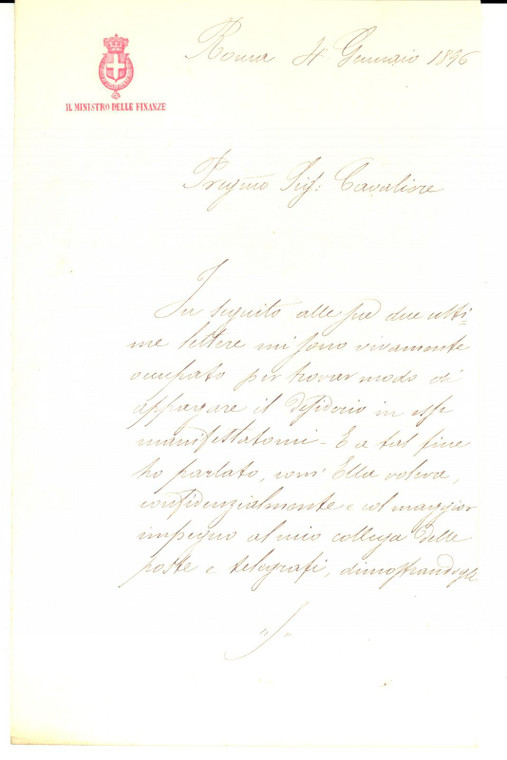 Roma 4 Gennaio 1896
IL MINISTRO DELLE FINANZE
Pregmo Sig: Cavaliere
In seguito alle sue due ulti=
me lettere mi sono vivamente
occupato per trovar modo di
appagare il desiderio in esse
manifestatomi - E a tal fine
ho parlato, com' Ella voleva,
confidenzialmente e col maggior
impegno al mio collega delle
poste e telegrafi, dimostrandogli